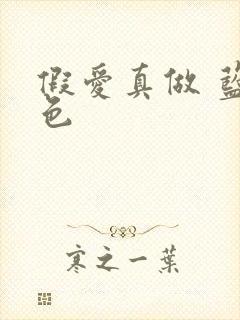 假愛真做 藍
色
寒之一葉